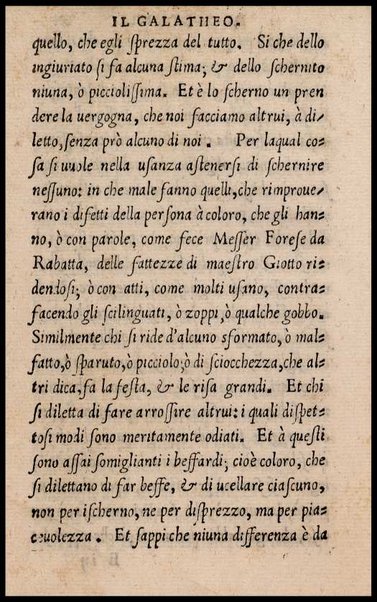 IL GALATHEO.
quello, che egli sprezza del tutto. Si che dello
ingiuriato si fa alcuna stima; & dello schernito
niuna, ò picciolissima. Et è lo scherno un pren
dere la uergogna, che noi facciamo altrui, à di-
letto, senza prò alcuno di noi. Per laqual co-
sa si uuole nella usanza astenersi di schernire
nessuno: in che male fanno quelli, che rimproue-
rano i difetti della persona à coloro, che gli han-
no, ò con parole, come fece Messer Forese da
Rabatta, delle fattezze di maestro Giotto ri-
dendosi; ò con atti, come molti usano, contra-
facendo gli scilinguati, ò zoppi, ò qualche gobbo.
Similmente chi si ride d'alcuno sformato, ò mal-
fatto, ò sparuto, ò picciolo; ò di sciocchezza, che al-
tri dica, fa la festa, & le risa grandi. Et chi
si diletta di fare arrossire altrui: i quali dispet-
tosi modi sono meritamente odiati. Et à questi
sono assai somiglianti i beffardi; cioè coloro, che
si dilettano di far beffe, & di ucellare ciascuno,
non per ischerno, ne per disprezzo, ma per pia-
ceuolezza. Et sappi che niuna differenza è da